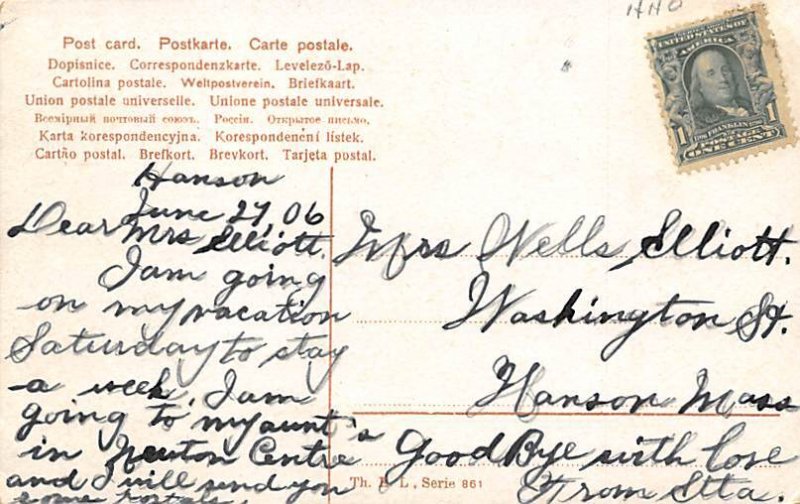 HHO
Post card. Postkarte. Carte postale.
Dopisnice. Correspondenzkarte. Levelező-Lap.
Cartolina postale. Weltpostverein. Briefkaart.
Union postale universelle. Unione postale universale.
Всемірный почтовый союзъ. Россія. Открытое письмо.
Karta korespondencyjna. Korespondenční lístek.
Cartão postal. Brefkort. Brevkort. Tarjeta postal.
UNITED STATES OF AMERICA
1 FRANKLIN 1
POSTAGE
ONE CENT
Hanson
June 27, 06
Dear Mrs Elliott.
I am going
on my vacation
Saturday to stay
a week, I am
going to my aunt's
in Newton Centre
and I will send you
some postals.
Mrs Wells Elliott.
Washington St.
Hanson Mass
Good Bye with love
From Etta.
Th. E. L., Serie 861